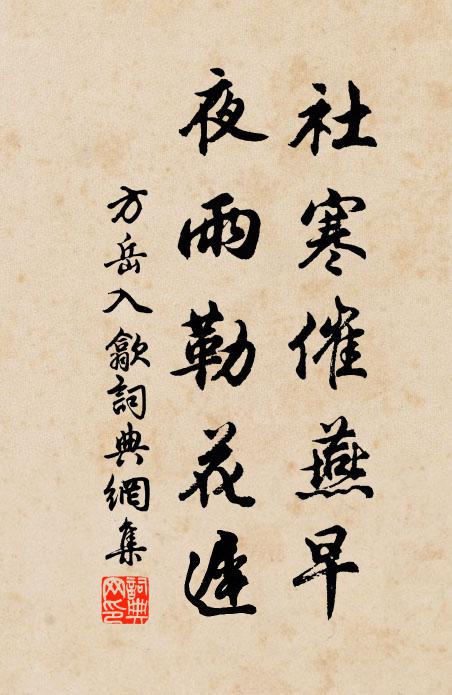 社寒催燕早
夜雨勒花遲
方岳入歙詞典網集
詞典網印